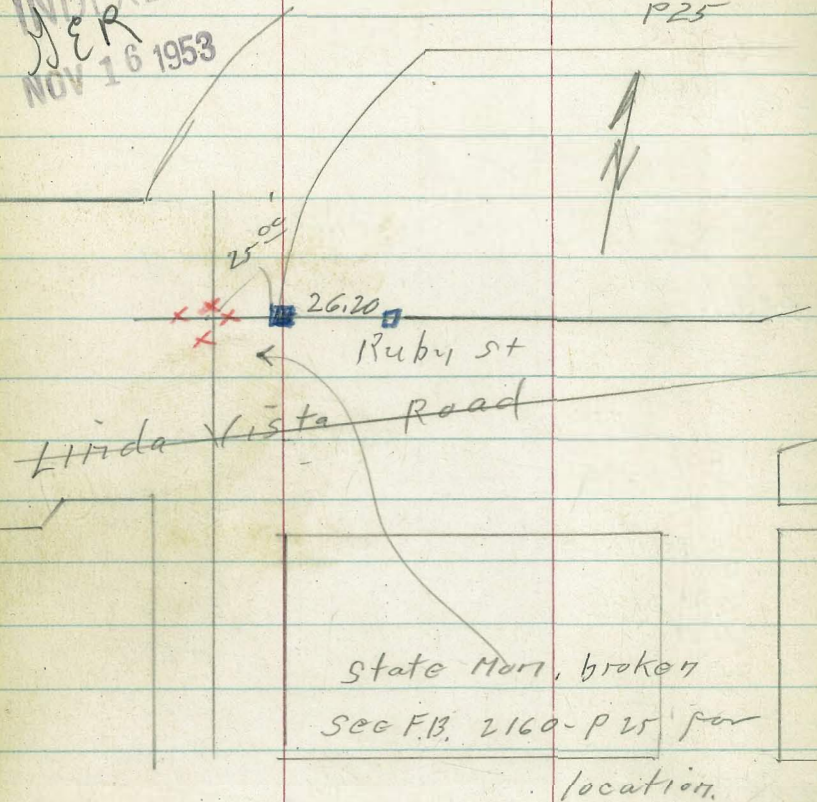 P25
NOV 16 1953
N
25.00
26.20
Ruby St
Linda Vista Road
State Mon. broken
See F.B. 2160-P25 for
location.